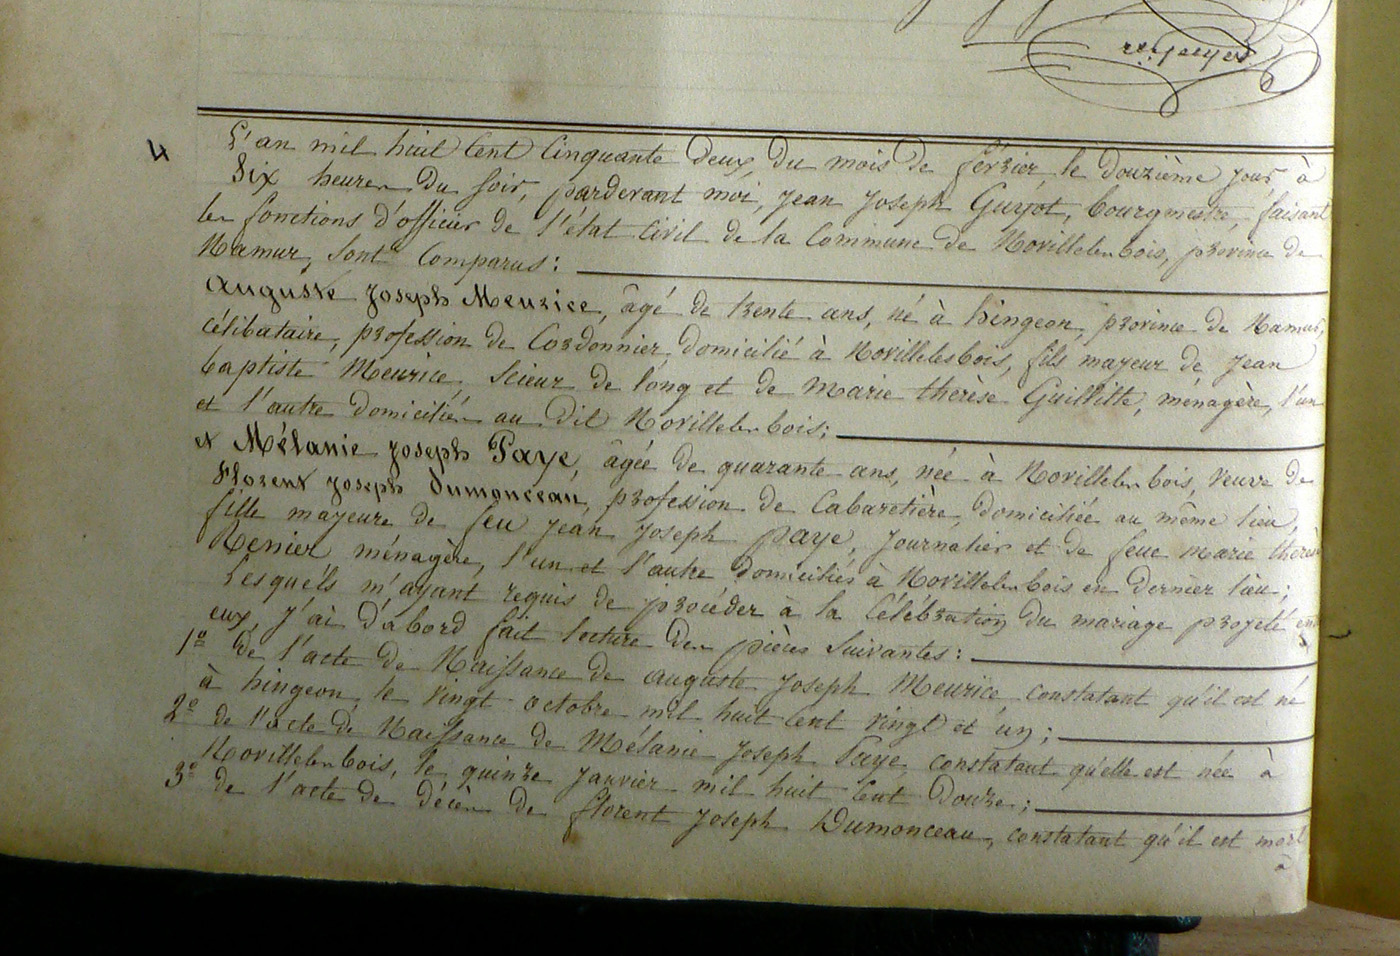 4
L'an mil huit Cent Cinquante deux du mois de février, le douzième jour à
Six heures du soir, pardevant moi, Jean Joseph Guyot, bourgmestre, faisant
les fonctions d'officier de l'état Civil de la Commune de Noville les bois, province de
Namur, sont Comparus :
Auguste Joseph Meurice, âgé de trente ans, né à hingeon, province de Namur,
célibataire, profession de Cordonnier, domicilié à Noville les bois, fils mayeur de Jean
baptiste Meurice, Scieur de long et de Marie therèse Guillitte, ménagère, l'un
et l'autre domiciliés au dit Noville les bois;
et Mélanie Joseph Paye, âgée de quarante ans, née à Noville les bois, veuve de
Florent Joseph Dumonceau, profession de Cabaretière, domiciliée au même lieu,
fille mayeure de feu Jean Joseph paye, Journalier et de feue Marie therèse
Renier ménagère, l'un et l'autre domiciliés à Noville les bois en dernier lieu;
Lesquels m'ayant requis de procéder à la Célébration du mariage projeté entre
eux, j'ai d'abord fait lecture des pièces Suivantes :
1º de l'acte de Naissance de auguste Joseph Meurice constatant qu'il est né
à hingeon, le vingt octobre mil huit Cent vingt et un;
2º de l'acte de Naissance de Mélanie Joseph Paye, constatant qu'elle est née à
Noville les bois, le quinze Janvier mil huit Cent Douze;
3º de l'acte de décès de florent Joseph Dumonceau, constatant qu'il est mort
à